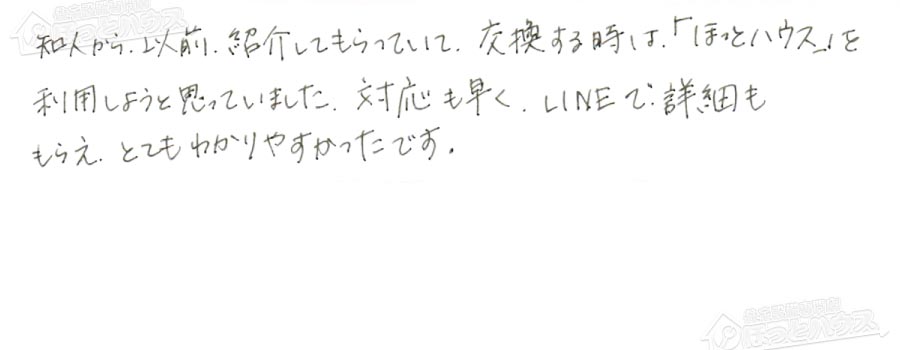 知人から、以前、紹介してもらっていて、交換する時は、「ほっとハウス」を
利用しようと思っていました。対応も早く、LINEで詳細も
もらえ、とてもわかりやすかったです。
ほっとハウス